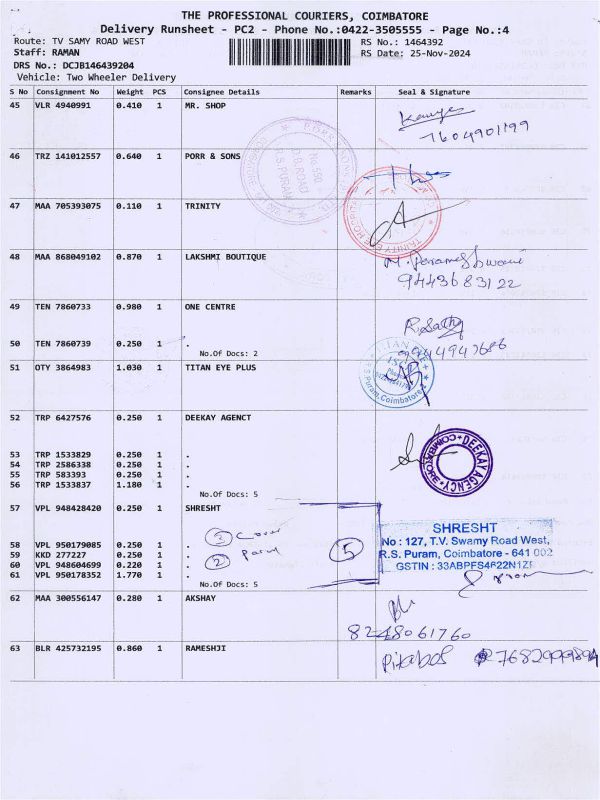 THE PROFESSIONAL COURIERS, COIMBATORE
Delivery Runsheet - PC2 - Phone No.:0422-3505555 - Page No.:4
Route: TV SAMY ROAD WEST RS No.: 1464392
Staff: RAMAN RS Date: 25-Nov-2024
DRS No.: DCJB146439204
Vehicle: Two Wheeler Delivery
S No Consignment No Weight PCS Consignee Details Remarks Seal & Signature
45 VLR 4940991 0.410 1 MR. SHOP
7604901199
46 TRZ 141012557 0.640 1 PORR & SONS
D.B.ROAD
R.S.PURAM
47 MAA 705393075 0.110 1 TRINITY
TRINITY EYE HOSPITAL
48 MAA 868049102 0.870 1 LAKSHMI BOUTIQUE
M. Parameshwari
9443683122
49 TEN 7860733 0.980 1 ONE CENTRE
R. Sathy
50 TEN 7860739 0.250 1 .
No.Of Docs: 2
51 OTY 3864983 1.030 1 TITAN EYE PLUS
R.S.Puram, Coimbatore
52 TRP 6427576 0.250 1 DEEKAY AGENCT
DEEKAY AGENCY COIMBATORE
53 TRP 1533829 0.250 1 .
54 TRP 2586338 0.250 1 .
55 TRP 583393 0.250 1 .
56 TRP 1533837 1.180 1 .
No.Of Docs: 5
57 VPL 948428420 0.250 1 SHRESHT
SHRESHT
No : 127, T.V. Swamy Road West,
R.S. Puram, Coimbatore - 641 002
GSTIN : 33ABPFS4622N1Z
3 Cover
58 VPL 950179085 0.250 1 .
59 KKD 277227 0.250 1 .
5
60 VPL 948604699 0.220 1 .
2
61 VPL 950178352 1.770 1 .
No.Of Docs: 5
62 MAA 300556147 0.280 1 AKSHAY
8248061760
63 BLR 425732195 0.860 1 RAMESHJI